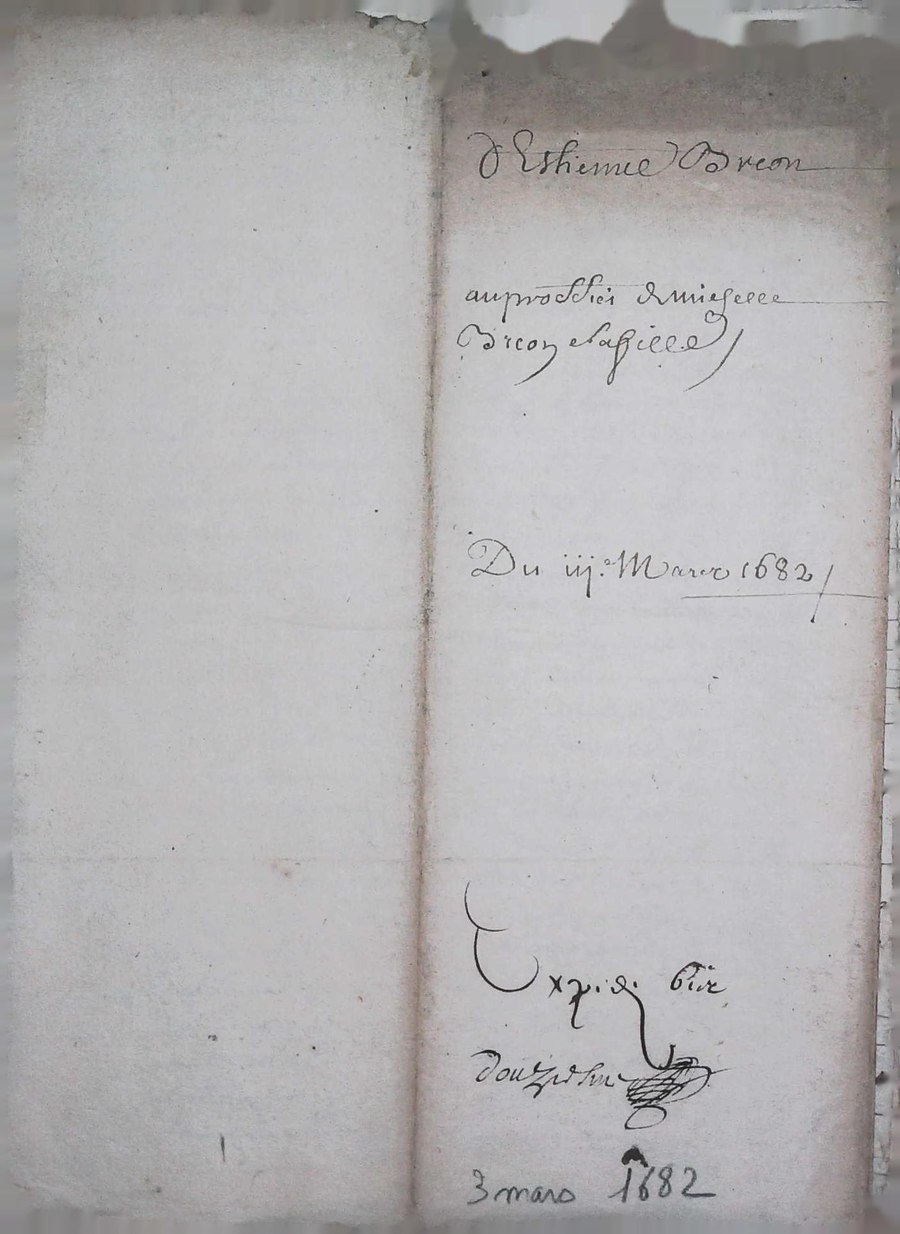 d'Estienne Breon
au proffict de michelle
Breon et sa fille /
Du iij.e Marx 1682 /
Expedi
3 mars 1682